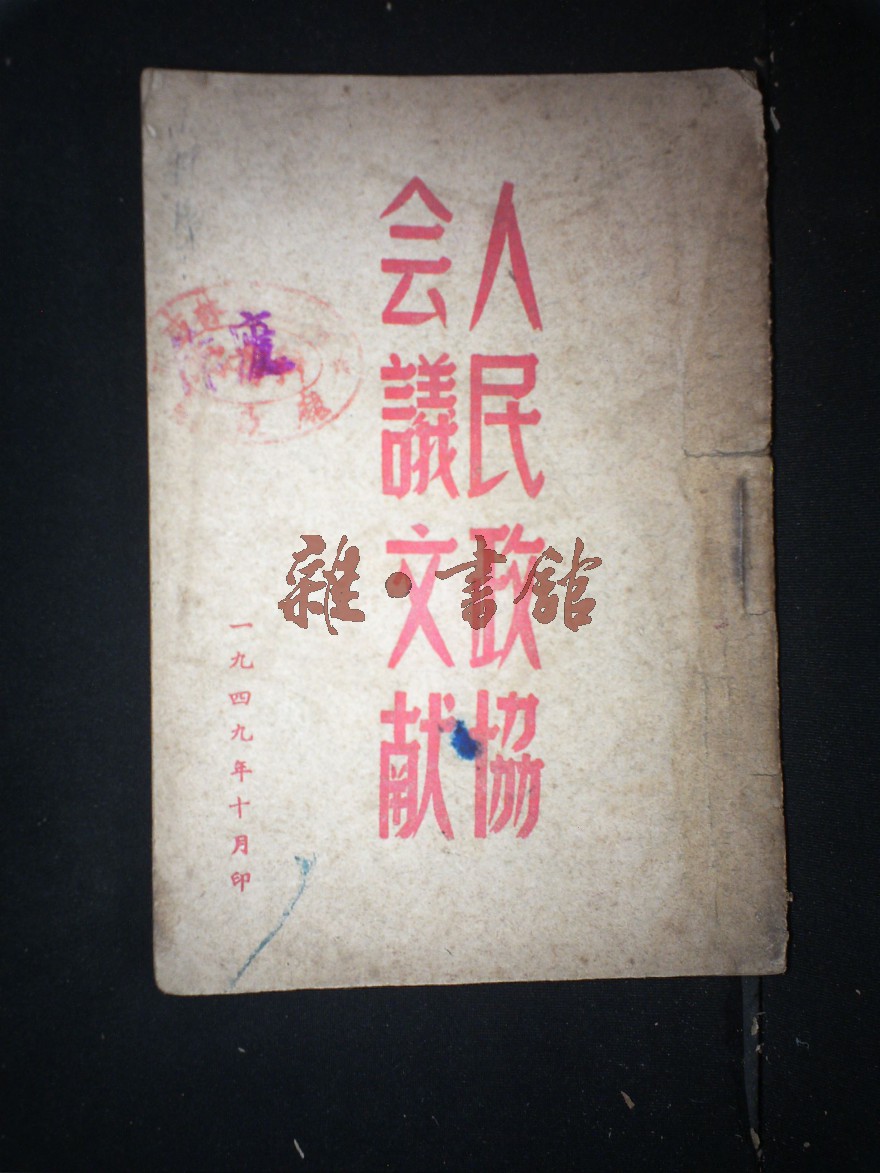 人民政協
会議文献
一九四九年十月印
雜·書館